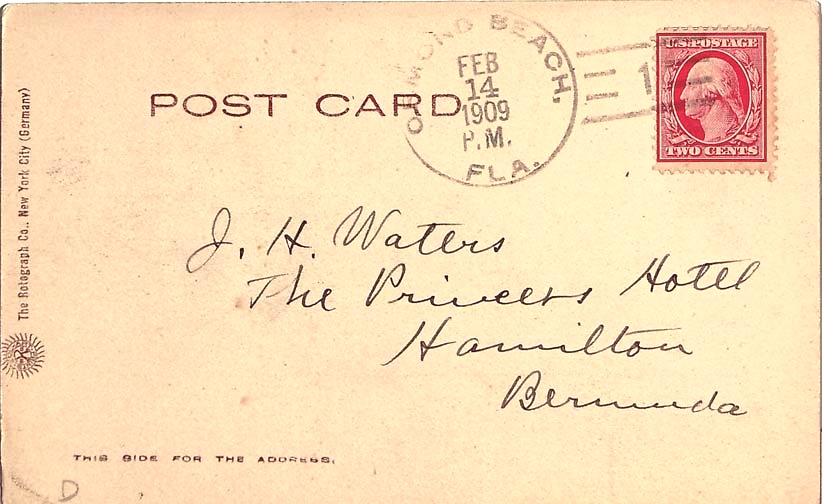 POST CARD
ORMOND BEACH,
FEB
14
1909
P.M.
FLA.
1
U.S. POSTAGE
TWO CENTS
The Rotograph Co., New York City (Germany)
J. H. Waters
The Princess Hotel
Hamilton
Bermuda
THIS SIDE FOR THE ADDRESS.
D